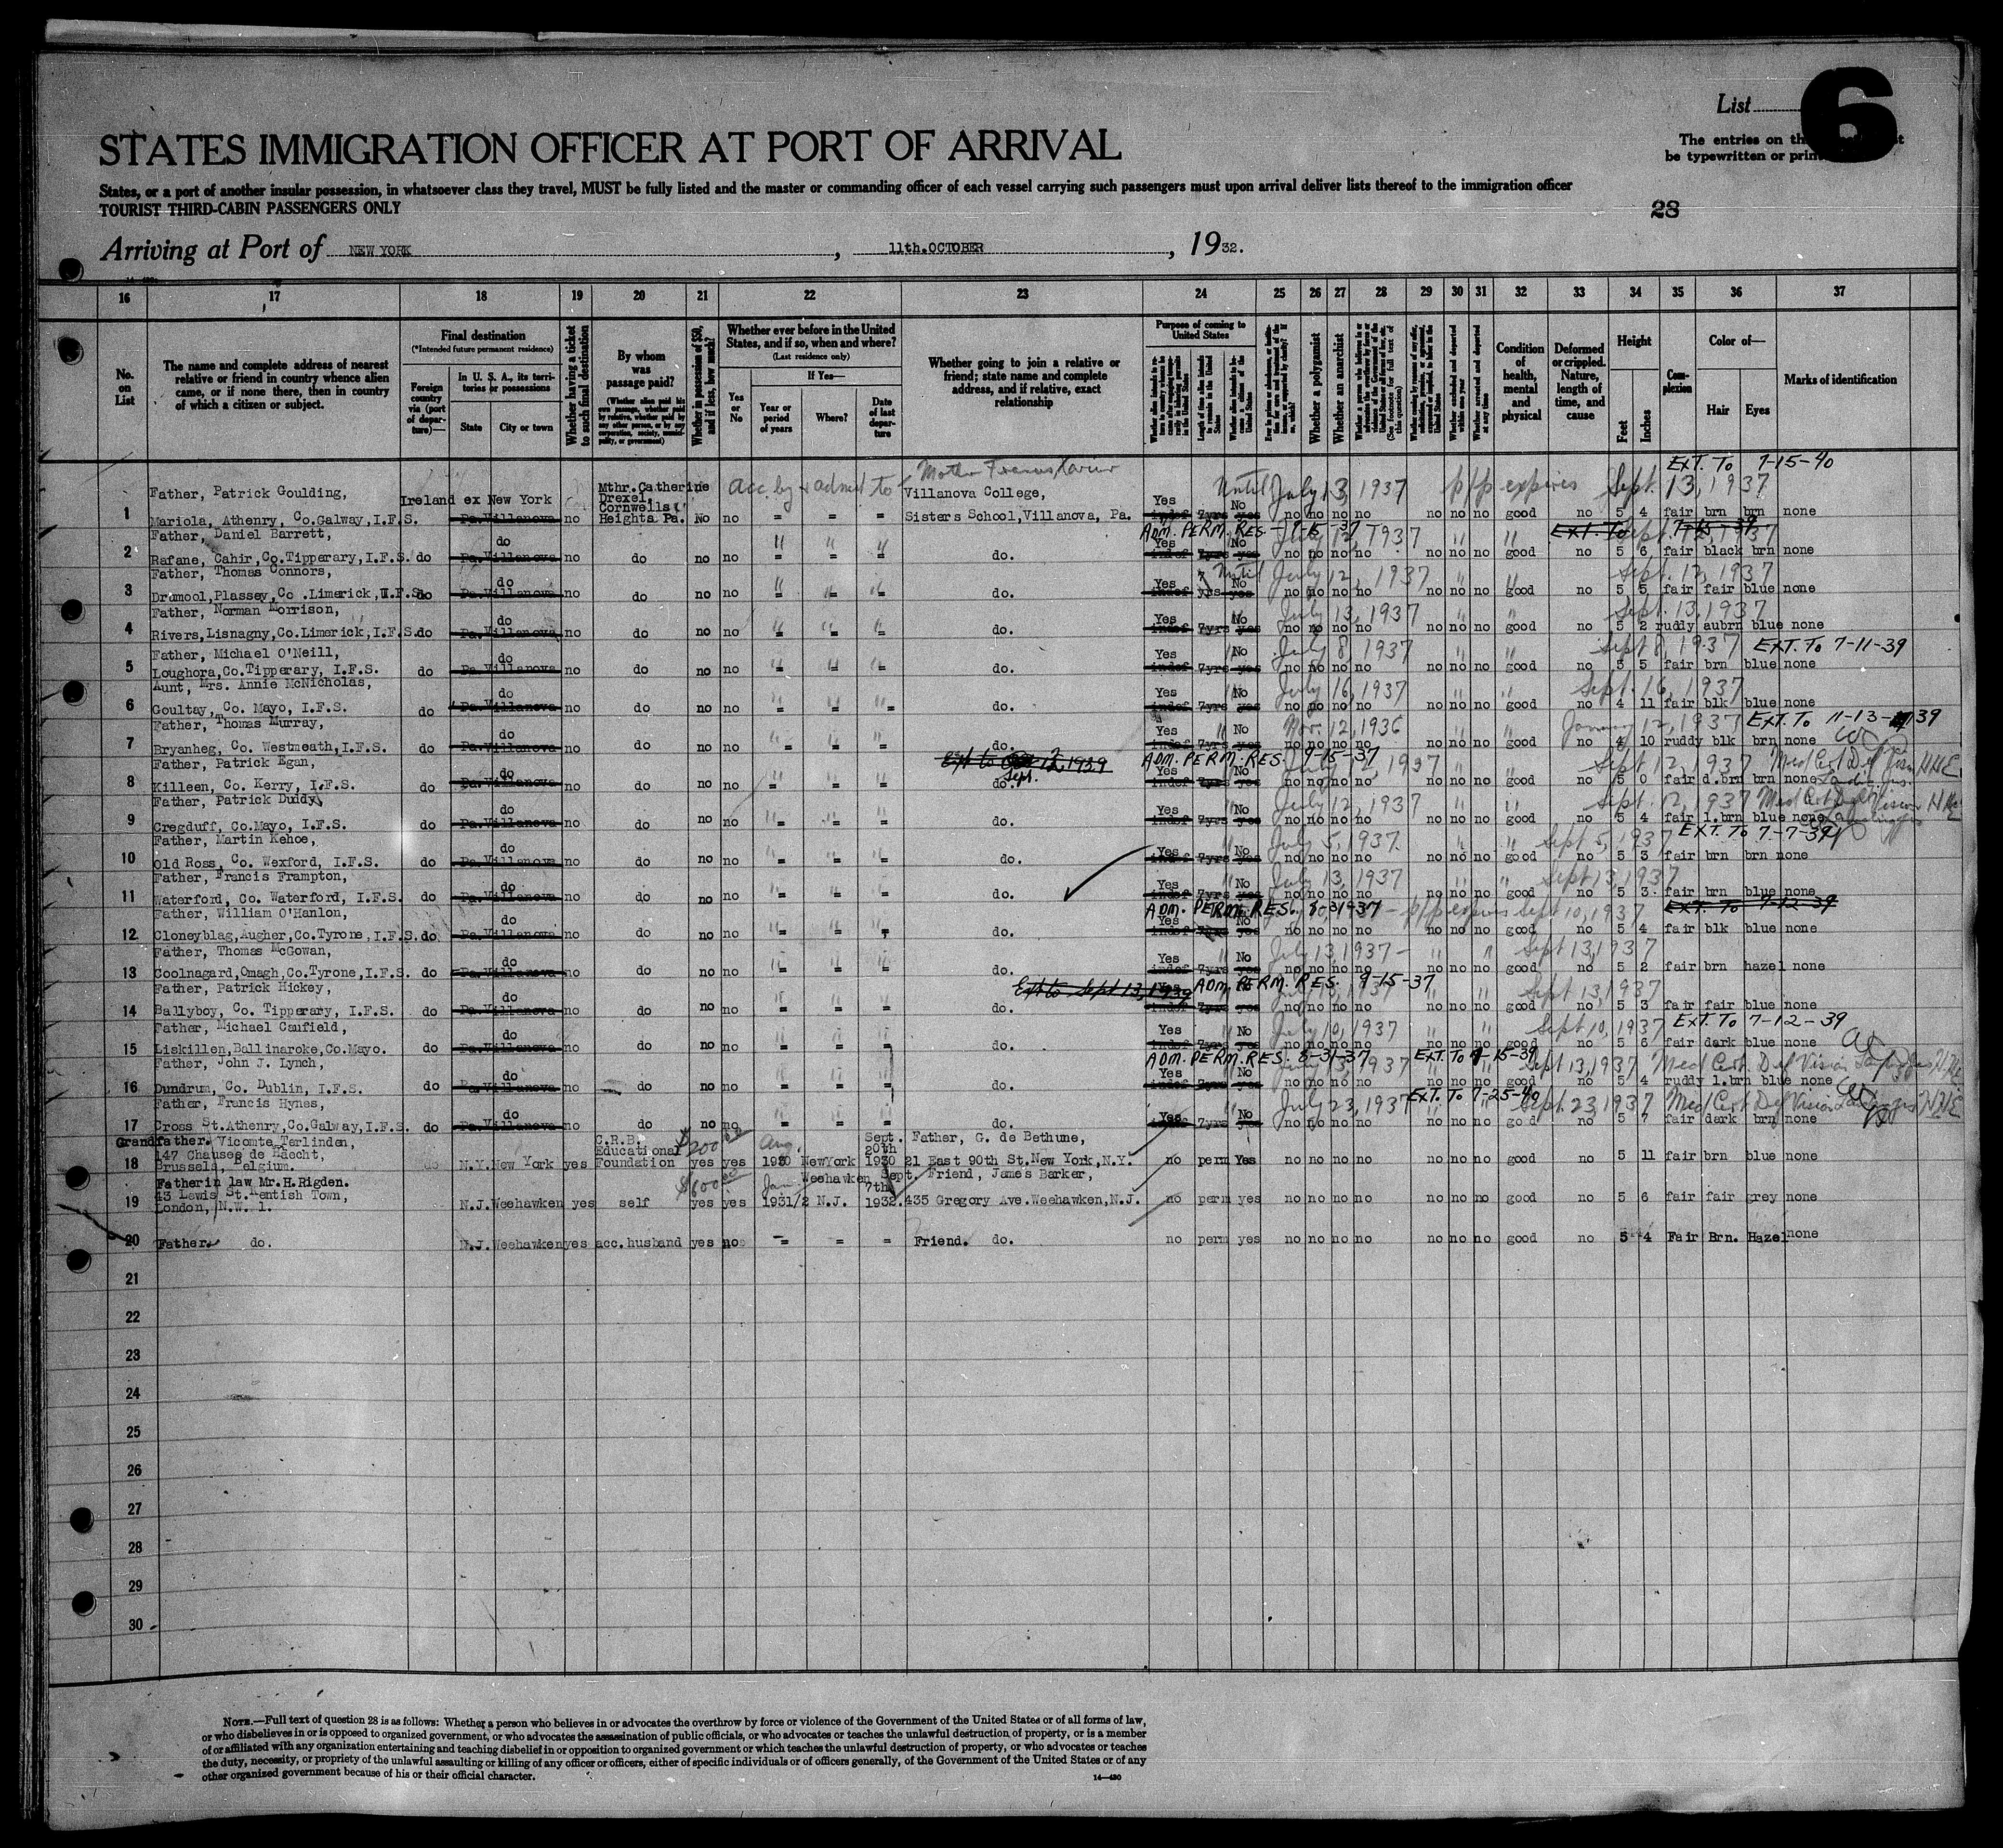 List
6
The entries on
be typewritten or
STATES IMMIGRATION OFFICER AT PORT OF ARRIVAL
States, or a port of another insular possession, in whatsoever class they travel, MUST be fully listed and the master or commanding officer of each vessel carrying such passengers must upon arrival deliver lists thereof to the immigration officer
TOURIST THIRD-CABIN PASSENGERS ONLY
28
Arriving at Port of NEW YORK , 11th.OCTOBER , 19 32.
16 17 18 19 20 21 22 23 24 25 26 27 28 29 30 31 32 33 34 35 36 37
No. on List
The name and complete address of nearest relative or friend in country whence alien came, or if none there, then in country of which a citizen or subject.
Final destination
(*Intended future permanent residence)
Foreign country via (port of departure)—
In U. S. A., its territories or possessions
State
City or town
Whether having a ticket to such final destination
By whom was passage paid?
(Whether alien paid his own passage, whether paid by relative, whether paid by any other person, or by any corporation, society, municipality, or government)
Whether in possession of $50, and if less, how much?
Whether ever before in the United States, and if so, when and where?
(Last residence only)
Yes or No
If Yes—
Year or period of years
Where?
Date of last departure
Whether going to join a relative or friend; state name and complete address, and if relative, exact relationship
Purpose of coming to United States
Whether a polygamist
Whether an anarchist
Condition of health, mental and physical
Deformed or crippled. Nature, length of time, and cause
Height
Feet
Inches
Complexion
Color of—
Hair
Eyes
Marks of identification
Mother Francis Xavier EXT. TO 7-15-40
Father, Patrick Goulding, Ireland ex New York Mthr. Catherine Drexel, Cornwells Heights Pa. acc by admted to Villanova College, Yes Until No July 13, 1937 p/p expires Sept. 13, 1937
1 Mariola, Athenry, Co.Galway, I.F.S. Pa. Villanova no No no = = = Sisters School, Villanova, Pa. indef 7yrs yes no no no no no no no good no 5 4 fair brn brn none
Father, Daniel Barrett, do ADM. PERM. RES. Yes No July 12, 1937 EXT. To
2 Rafane, Cahir, Co.Tipperary, I.F.S. do Pa. Villanova no do no no = = = do. indef 7yrs yes no no no no no no no good no 5 6 fair black brn none
Father, Thomas Connors, do Yes Until No July 12, 1937 Sept. 12, 1937
3 Dromool, Plassey, Co .Limerick, I.F.S. do Pa. Villanova no do no no = = = do. indef yrs yes no no no no no no no good no 5 5 fair fair blue none
Father, Norman Morrison, do Yes No July 13, 1937 Sept. 13, 1937
4 Rivers, Lisnagny, Co.Limerick, I.F.S. do Pa. Villanova no do no no = = = do. indef 7yrs yes no no no no no no no good no 5 2 ruddy aubrn blue none
Father, Michael O'Neill, do Yes No July 8, 1937 Sept 8, 1937 EXT. To 7-11-39
5 Loughora, Co.Tipperary, I.F.S. do Pa. Villanova no do no no = = = do. indef 7yrs yes no no no no no no no good no 5 5 fair brn blue none
Aunt, Mrs. Annie McNicholas, do Yes No July 16, 1937 Sept. 16, 1937
6 Goultay, Co. Mayo, I.F.S. do Pa. Villanova no do no no = = = do. indef 7yrs yes no no no no no no no good no 4 11 fair blk blue none
Father, Thomas Murray, do Yes No Nov. 12, 1936 January 12, 1937 EXT. To 11-13-39
7 Bryanheg, Co. Westmeath, I.F.S. do Pa. Villanova no do no no = = = do. indef 7yrs yes no no no no no no no good no 4 10 ruddy blk brn none
Father, Patrick Egan, do Ext to Sept. 12, 1939 ADM. PERM. RES. 9-15-37 Yes No 1937 Sept 12, 1937 Med Cert Def Vision
8 Killeen, Co. Kerry, I.F.S. do Pa. Villanova no do no no = = = do. indef 7yrs yes no no no no no no no good no 5 0 fair d.brn brn none
Father, Patrick Duddy, do Yes No July 12, 1937 Sept. 12, 1937 Med Cert Def Vision
9 Cregduff, Co.Mayo, I.F.S. do Pa. Villanova no do no no = = = do. indef 7yrs yes no no no no no no no good no 5 4 fair l.brn blue none
Father, Martin Kehoe, do Yes No July 5, 1937 Sept 5, 1937 EXT. To 7-7-39
10 Old Ross, Co. Wexford, I.F.S. do Pa. Villanova no do no no = = = do. indef 7yrs yes no no no no no no no good no 5 3 fair brn brn none
Father, Francis Frampton, do Yes No July 13, 1937 Sept 13 1937
11 Waterford, Co. Waterford, I.F.S. do Pa. Villanova no do no no = = = do. indef 7yrs yes no no no no no no no good no 5 3 fair brn blue none
Father, William O'Hanlon, do ADM. PERM. RES. 8-31-37 Yes 1937 - p/p expires Sept 10, 1937 EXT. To 7-12-39
12 Cloneyblag, Augher, Co.Tyrone, I.F.S. do Pa. Villanova no do no no = = = do. indef 7yrs yes no no no no no no no good no 5 4 fair blk blue none
Father, Thomas McGowan, do July 13, 1937 - Sept 13, 1937
13 Coolnagard, Omagh, Co.Tyrone, I.F.S. do Pa. Villanova no do no no = = = do. indef 7yrs yes no no no no no no no good no 5 2 fair brn hazel none
Father, Patrick Hickey, do Ext to Sept 13, 1939 ADM. PERM. RES. 9-15-37 Sept 13, 1937
14 Ballyboy, Co. Tipperary, I.F.S. do Pa. Villanova no do no no = = = do. indef 7yrs yes no no no no no no no good no 5 3 fair fair blue none
Father, Michael Caufield, do Yes No July 10, 1937 Sept 10, 1937 EXT. To 7-12-39
15 Liskillen, Ballinaroke, Co.Mayo. do Pa. Villanova no do no no = = = do. indef 7yrs yes no no no no no no no good no 5 6 fair dark blue none
Father, John J. Lynch, do ADM. PERM. RES. 8-31-37 Yes No July 13, 1937 EXT. To 9-15-39 Sept 13, 1937 Med Cert. Def Vision
16 Dundrum, Co. Dublin, I.F.S. do Pa. Villanova no do no no = = = do. indef 7yrs yes no no no no no no no good no 5 4 ruddy l.brn blue none
Father, Francis Hynes, do Yes No July 23, 1937 EXT. To 7-25-40 Sept. 23, 1937 Med Cert Def Vision
17 Cross St.Athenry, Co.Galway, I.F.S. do Pa. Villanova no do no no = = = do. indef 7yrs yes no no no no no no no good no 5 7 fair dark brn none
Grandfather. Vicomte Terlinden, C.R.B. $200 Aug. Sept. Father, G. de Bethune,
147 Chausee de Haecht, Educational 20th
18 Brussels, Belgium. N.Y. New York yes Foundation yes yes 1930 NewYork 1930 21 East 90th St. New York, N.Y. no perm Yes no no no no no no no good no 5 11 fair brn blue none
Father in law, Mr.H.Rigden. $600 Jan. Weehawken Sept. Friend, James Barker,
43 Lewis St. Kentish Town, 7th
19 London, N.W. 1. N.J. Weehawken yes self yes yes 1931/2 N.J. 1932. 435 Gregory Ave. Weehawken, N.J. no perm yes no no no no no no no good no 5 6 fair fair grey none
20 Father. do. N.J. Weehawken yes acc. husband yes no = = = Friend. do. no perm yes no no no no no no no good no 5 4 Fair Brn. Hazel none
21
22
23
24
25
26
27
28
29
30
NOTE.—Full text of question 28 is as follows: Whether a person who believes in or advocates the overthrow by force or violence of the Government of the United States or of all forms of law,
or who disbelieves in or is opposed to organized government, or who advocates the assassination of public officials, or who advocates or teaches the unlawful destruction of property, or is a member
of or affiliated with any organization entertaining and teaching disbelief in or opposition to organized government or which teaches the unlawful destruction of property, or who advocates or teaches
the duty, necessity, or propriety of the unlawful assaulting or killing of any officer or officers, either of specific individuals or of officers generally, of the Government of the United States or of any
other organized government because of his or their official character.
14—430